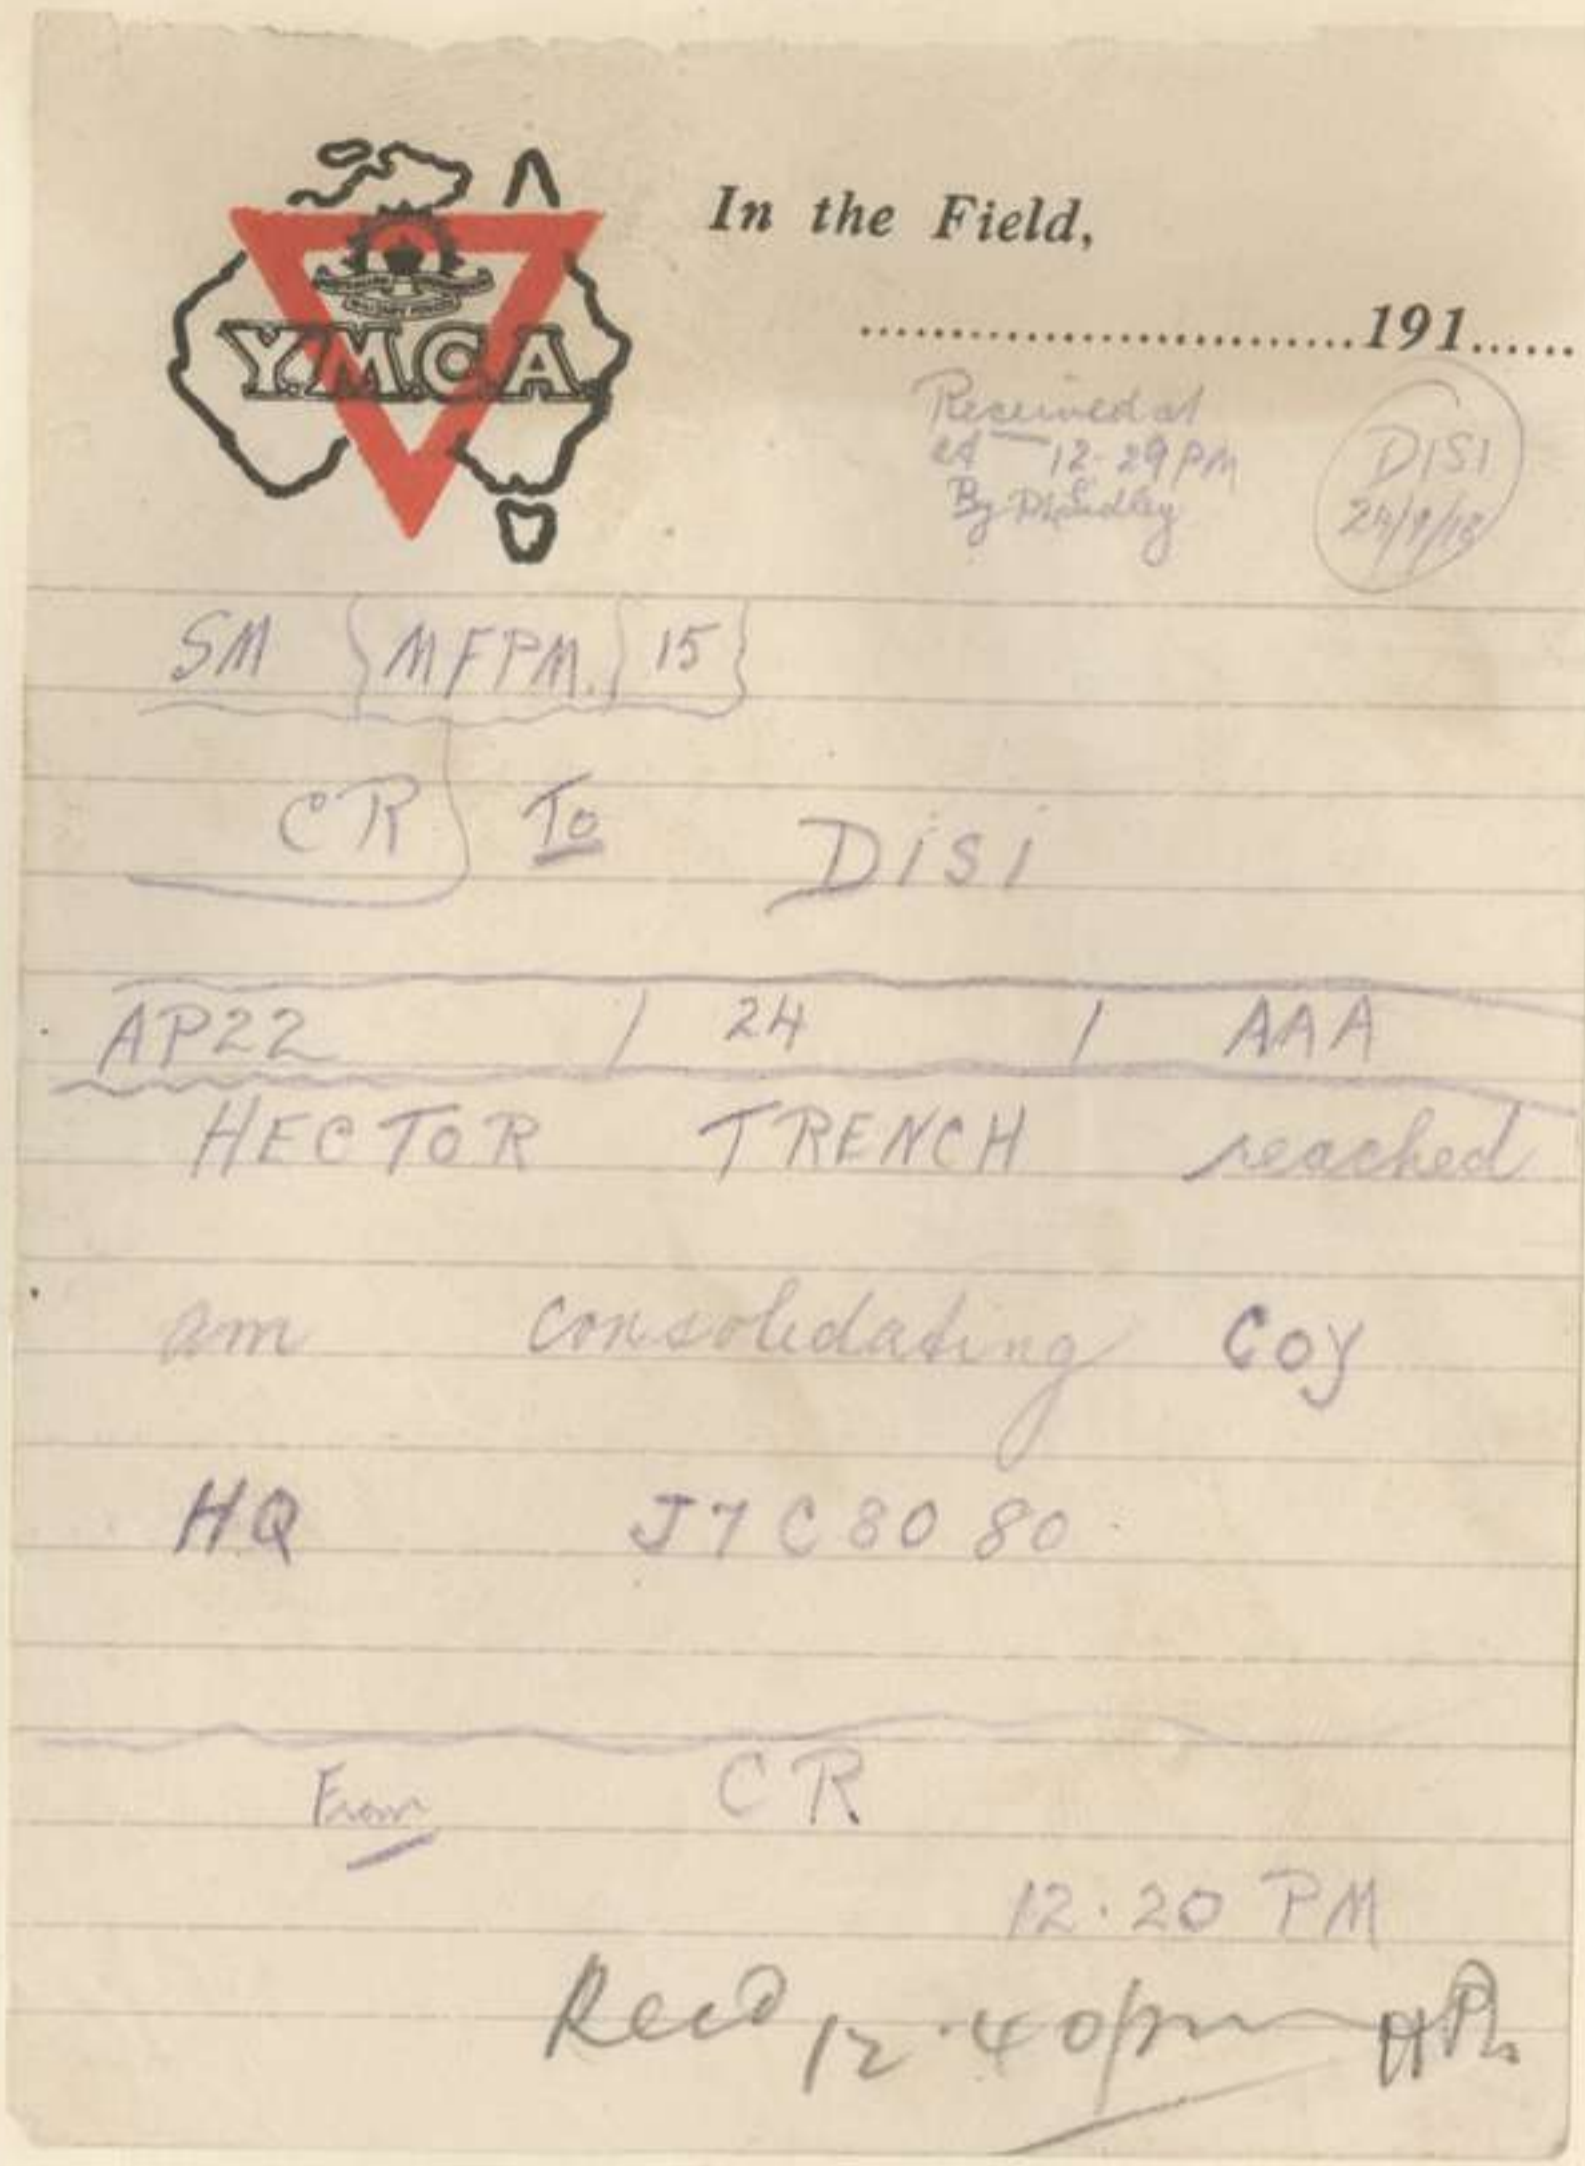 In the Field,
Y.M.C.A.
..............................191......
Received at
at 12-29 PM
By
DISI
24/9/18
SM MFPM. 15
CR To DISI
AP22 / 24 / AAA
HECTOR TRENCH reached
am consolidating Coy
HQ J7C80 80
From CR
12.20 PM
Recd 12.40pm